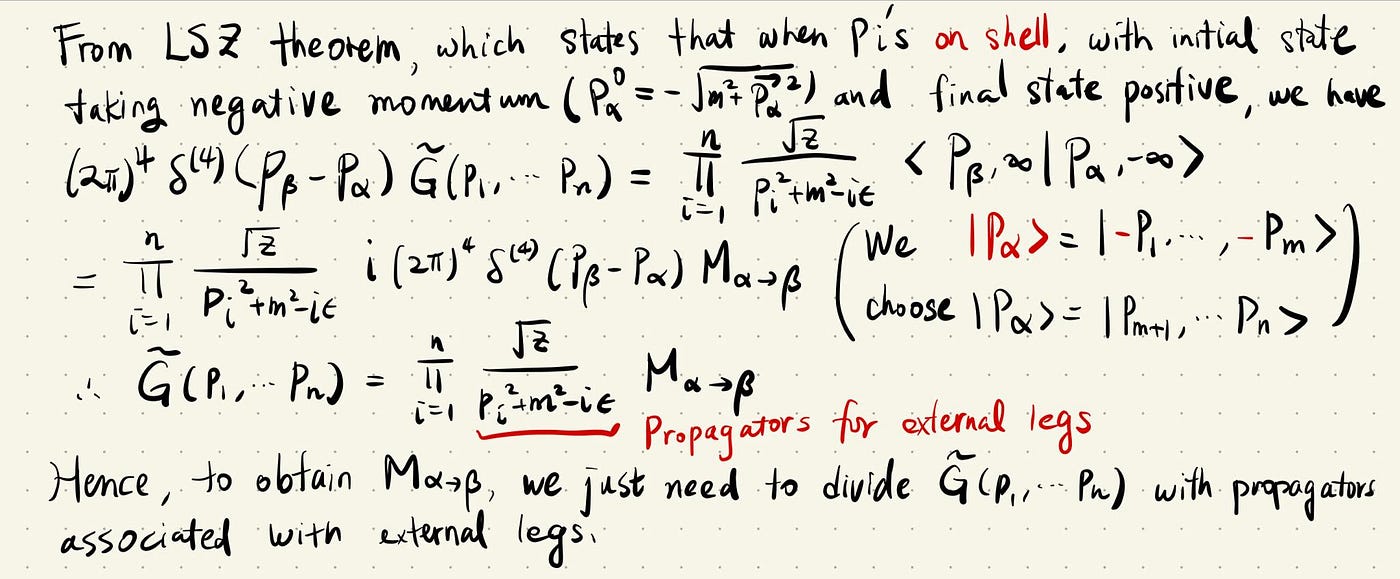 From LSZ theorem, which states that when Pi's on shell, with initial state
taking negative momentum (P_α^0 = -√(m²+P⃗_α²)) and final state positive, we have
(2π)^4 δ^(4)(P_β - P_α) G̃(P_1, ... P_n) = ∏_{i=1}^{n} √Z/(P_i²+m²-iε) <P_β, ∞|P_α, -∞>
= ∏_{i=1}^{n} √Z/(P_i²+m²-iε) i(2π)^4 δ^(4)(P_β - P_α) M_{α→β}
(We |P_α> = |-P_1, ..., -P_m>
choose |P_α> = |P_{m+1}, ... P_n>)
∴ G̃(P_1, ... P_n) = ∏_{i=1}^{n} √Z/(P_i²+m²-iε) M_{α→β}
Propagators for external legs
Hence, to obtain M_{α→β}, we just need to divide G̃(P_1, ... P_n) with propagators
associated with external legs.